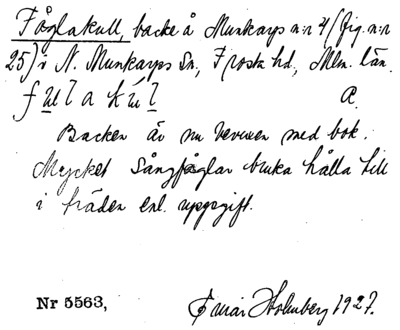 Fåglakull, backe å Munkarps n:r 4 (fig. n:r
25) i N. Munkarps Sn, Frosta hd, Mlm. län.
f u l a k u l l A.
Backen är nu bevuxen med bok.
Mycket Sångfåglar bruka hålla till
i träden enl. uppgift.
Nr 5563, Holmberg 1927.